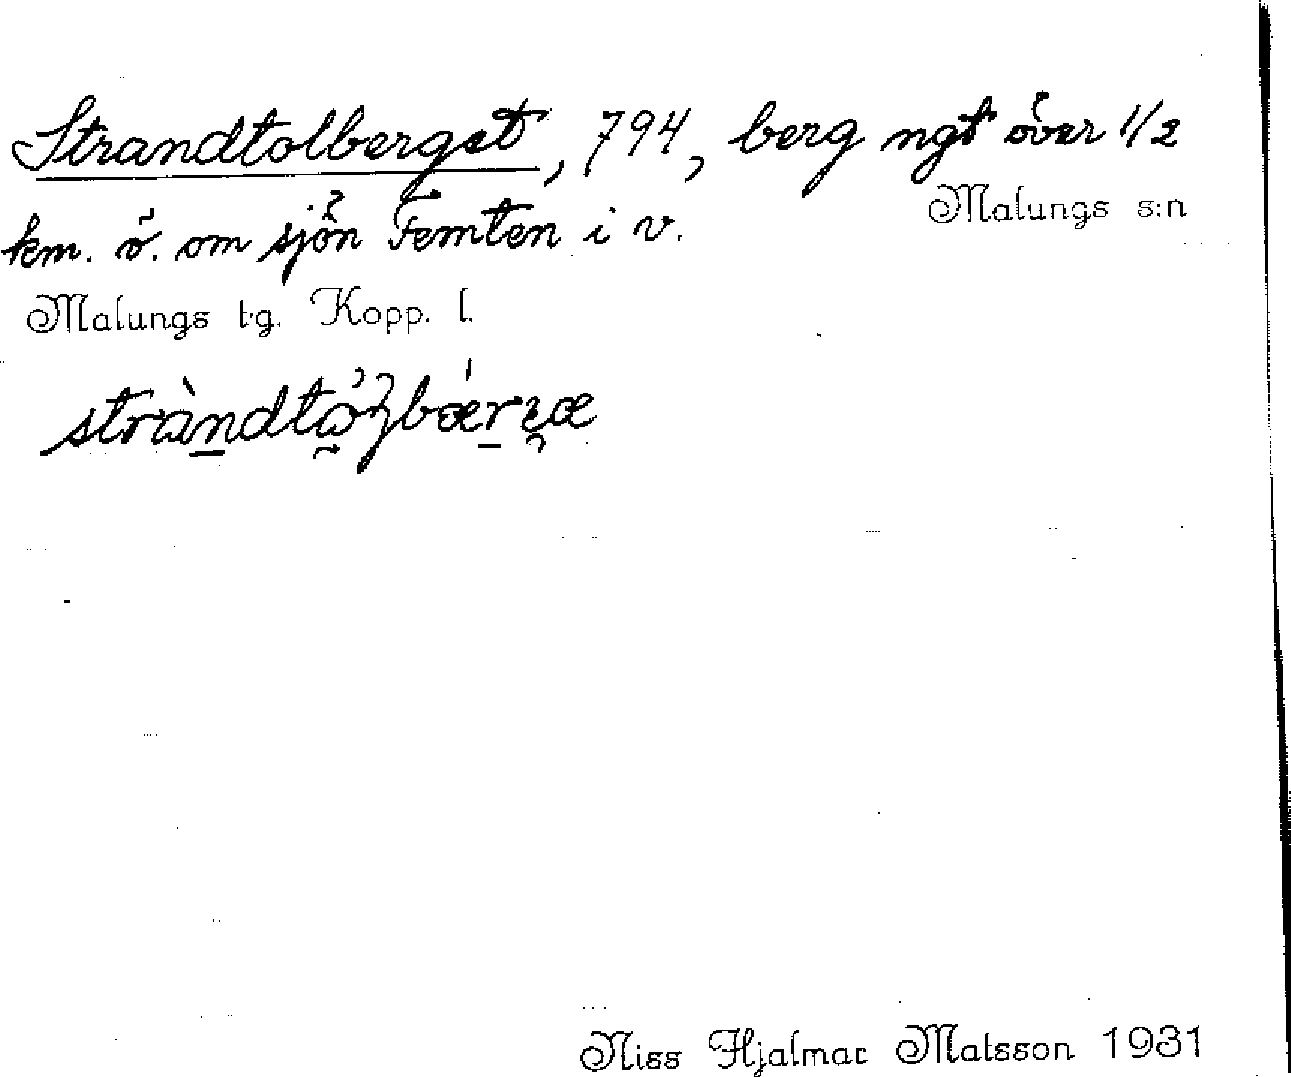 Strandtolberget, 794, berg ngt över 1/2
Malungs s:n
km. ö. om sjön Femten i v.
Malungs t.g. Kopp. l.
Niss Hjalmar Matsson 1931